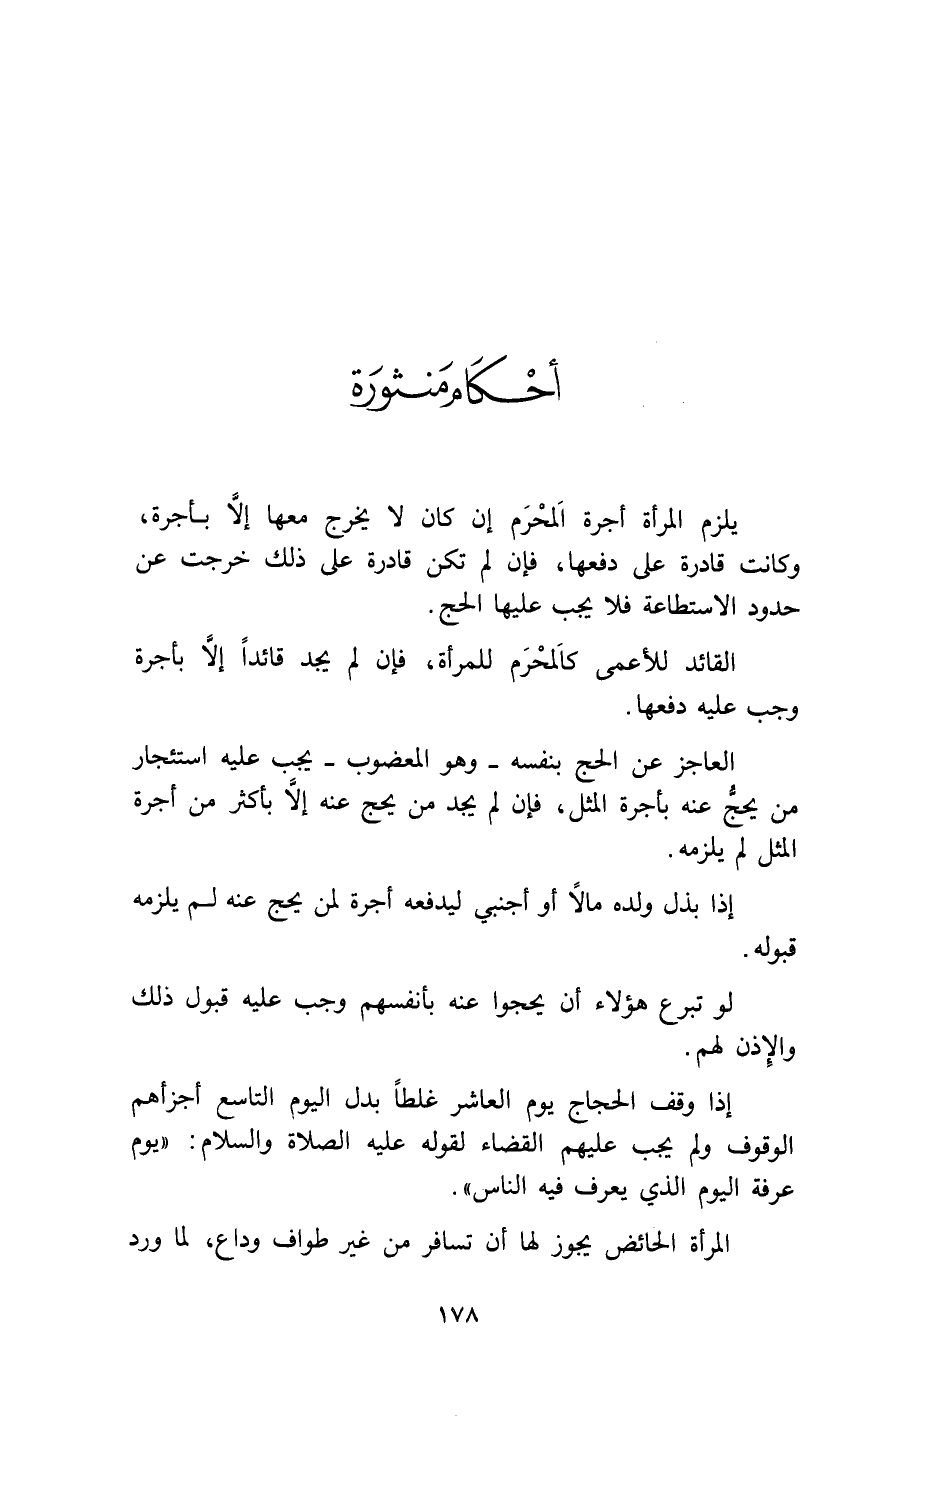 أَحْكَام مَنثورَة
يلزم المرأة أجرة اَلمحْرَم إن كان لا يخرج معها إلَّا بأجرة،
وكانت قادرة على دفعها، فإن لم تكن قادرة على ذلك خرجت عن
حدود الاستطاعة فلا يجب عليها الحج.
القائد للأعمى كاَلمحْرَم للمرأة، فإن لم يجد قائداً إلَّا بأجرة
وجب عليه دفعها.
العاجز عن الحج بنفسه - وهو المعضوب - يجب عليه استئجار
من يحجُّ عنه بأجرة المثل، فإن لم يجد من يحج عنه إلَّا بأكثر من أجرة
المثل لم يلزمه.
إذا بذل ولده مالًا أو أجنبي ليدفعه أجرة لمن يحج عنه لم يلزمه
قبوله.
لو تبرع هؤلاء أن يحجوا عنه بأنفسهم وجب عليه قبول ذلك
والإِذن لهم.
إذا وقف الحجاج يوم العاشر غلطاً بدل اليوم التاسع أجزأهم
الوقوف ولم يجب عليهم القضاء لقوله عليه الصلاة والسلام: «يوم
عرفة اليوم الذي يعرف فيه الناس».
المرأة الحائض يجوز لها أن تسافر من غير طواف وداع، لما ورد
١٧٨